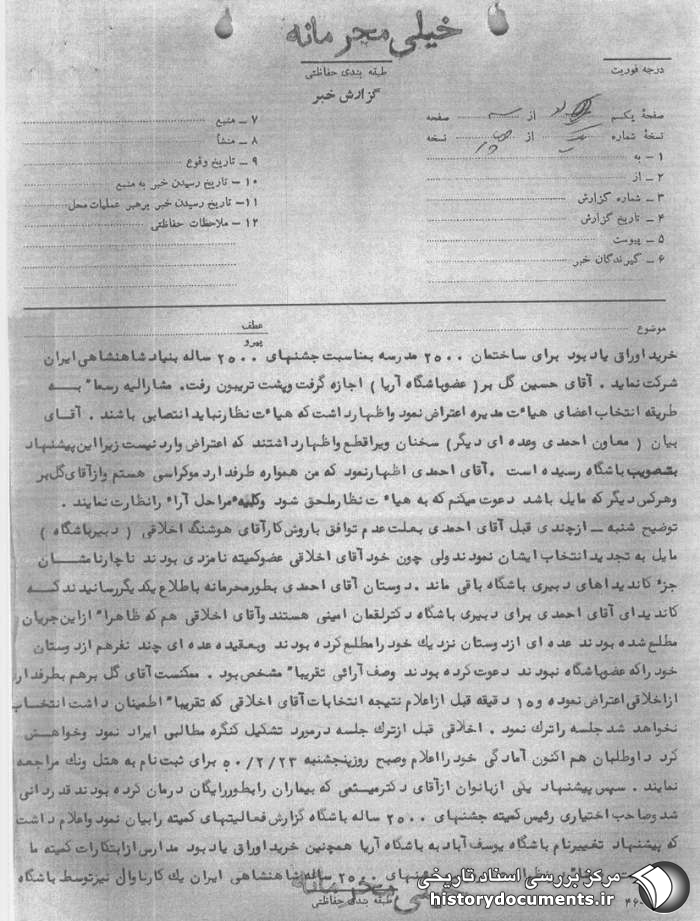 خیلی محرمانه
طبقه بندی حفاظتی
درجه فوریت
گزارش خبر
صفحهٔ یکم از سه صفحه
نسخهٔ شماره از نسخه
۱ – به
۲ – از
۳ – شماره گزارش
۴ – تاریخ گزارش
۵ – پیوست
۶ – گیرندگان خبر
۷ – منبع
۸ – منشأ
۹ – تاریخ وقوع
۱۰ – تاریخ رسیدن خبر به منبع
۱۱ – تاریخ رسیدن خبر برهبر عملیات محل
۱۲ – ملاحظات حفاظتی
موضوع
عطف
پیرو
خرید اوراق یاد بود برای ساختمان ۲۵۰۰ مدرسه بمناسبت جشنهای ۲۵۰۰ ساله بنیاد شاهنشاهی ایران
شرکت نماید . آقای حسین گل بر ( عضو باشگاه آریا ) اجازه گرفت وپشت تریبون رفت. مشارالیه رسماً به
طریقه انتخاب اعضای هیاءت مدیره اعتراض نمود واظهارداشت که هیاءت نظارنباید انتصابی باشند . آقای
بیان ( معاون احمدی وعده ای دیگر) سخنان ویرا قطع واظهارداشتند که اعتراض وارد نیست زیرا این پیشنهاد
بتصویب باشگاه رسیده است .آقای احمدی اظهارنمود که من همواره طرفدارد موکراسی هستم وازآقای گل بر
وهرکس دیگر که مایل باشد دعوت میکنم که به هیاءت نظارملحق شود وکلیه مراحل آراء رانظارت نمایند .
توضیح شنبه – ازچندی قبل آقای احمدی بعلت عدم توافق باروش کارآقای هوشنگ اخلاقی ( دبیر باشگاه )
مایل به تجدید انتخاب ایشان نمود ندولی چون خود آقای اخلاقی عضوکمیته نامزدی بودند ناچارنامشان
جزء کاندیداهای دبیری باشگاه باقی ماند .دوستان آقای احمدی بطورمحرمانه باطلاع یکدیگر رسانیدند که
کاندیدای آقای احمدی برای دبیری باشگاه دکترلقمان امینی هستند وآقای اخلاقی هم که ظاهراً ازاین جریان
مطلع شده بودند عده ای ازدوستان نزدیک خود رامطلع کرده بودند وبعقیده عده ای چند نفرهم ازدوستان
خود راکه عضوباشگاه نبودند دعوت کرده بودند وصف آرائی تقریباً مشخص بود . ممکنست آقای گل برهم بطرفدار
ازاخلاقی اعتراض نموده و۱۵ دقیقه قبل ازاعلام نتیجه انتخابات آقای اخلاقی که تقریباً اطمینان داشت انتخاب
نخواهد شد جلسه راترک نمود . اخلاقی قبل ازترک جلسه درمورد تشکیل کنگره مطالبی ایراد نمود وخواهش
کرد داوطلبان هم اکنون آمادگی خود رااعلام وصبح روزپنجشنبه ۵۰/۲/۲۳ برای ثبت نام به هتل ونک مراجعه
نمایند . سپس پیشنهاد یکی ازبانوان ازآقای دکترمیثمی که بیماران رابطوررایگان درمان کرده بودند قدردانی
شد وصاحب اختیاری رئیس کمیته جشنهای ۲۵۰۰ ساله باشگاه گزارش فعالیتهای کمیته رابیان نمود واعلام داشت
که پیشنهاد تغییرنام باشگاه یوسف آباد به باشگاه آریا همچنین خرید اوراق یاد بود مدارس ازابتکارات کمیته ما
جشنهای ۲۵۰۰ ساله شاهنشاهی ایران یک کارناوال نیزتوسط باشگاه
خیلی محرمانه
طبقه بندی حفاظتی
۴۶
مرکز بررسی اسناد تاریخی
historydocuments.ir